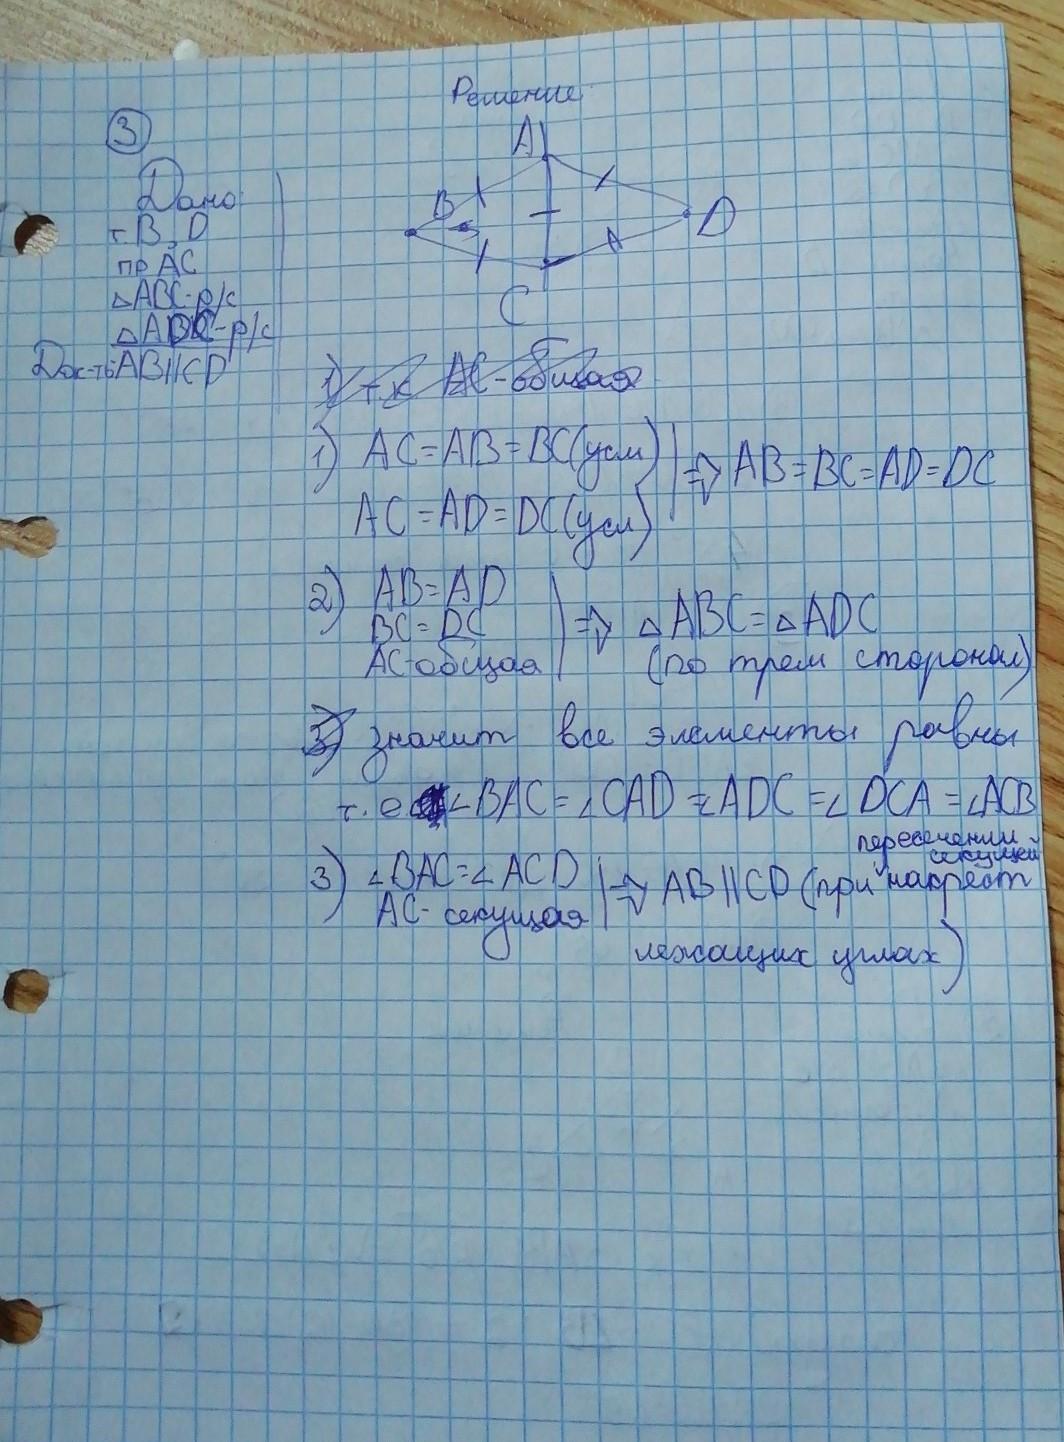 Решение
3
Дано:
т. B, D
пр AC
△ABC - р/с
△ADC - р/с
Док-ть AB||CD
A
B
D
C
1) т.к AC - общая
1) AC = AB = BC (усл)
AC = AD = DC (усл)
⇒ AB = BC = AD = DC
2) AB = AD
BC = DC
AC - общая
⇒ △ABC = △ADC
(по трем сторонам)
3) значит все элементы равны
т.е ∠BAC = ∠CAD = ∠ADC = ∠DCA = ∠ACB
3) ∠BAC = ∠ACD
AC - секущая
⇒ AB||CD (при пересечении секущей накрест
лежащих углах)